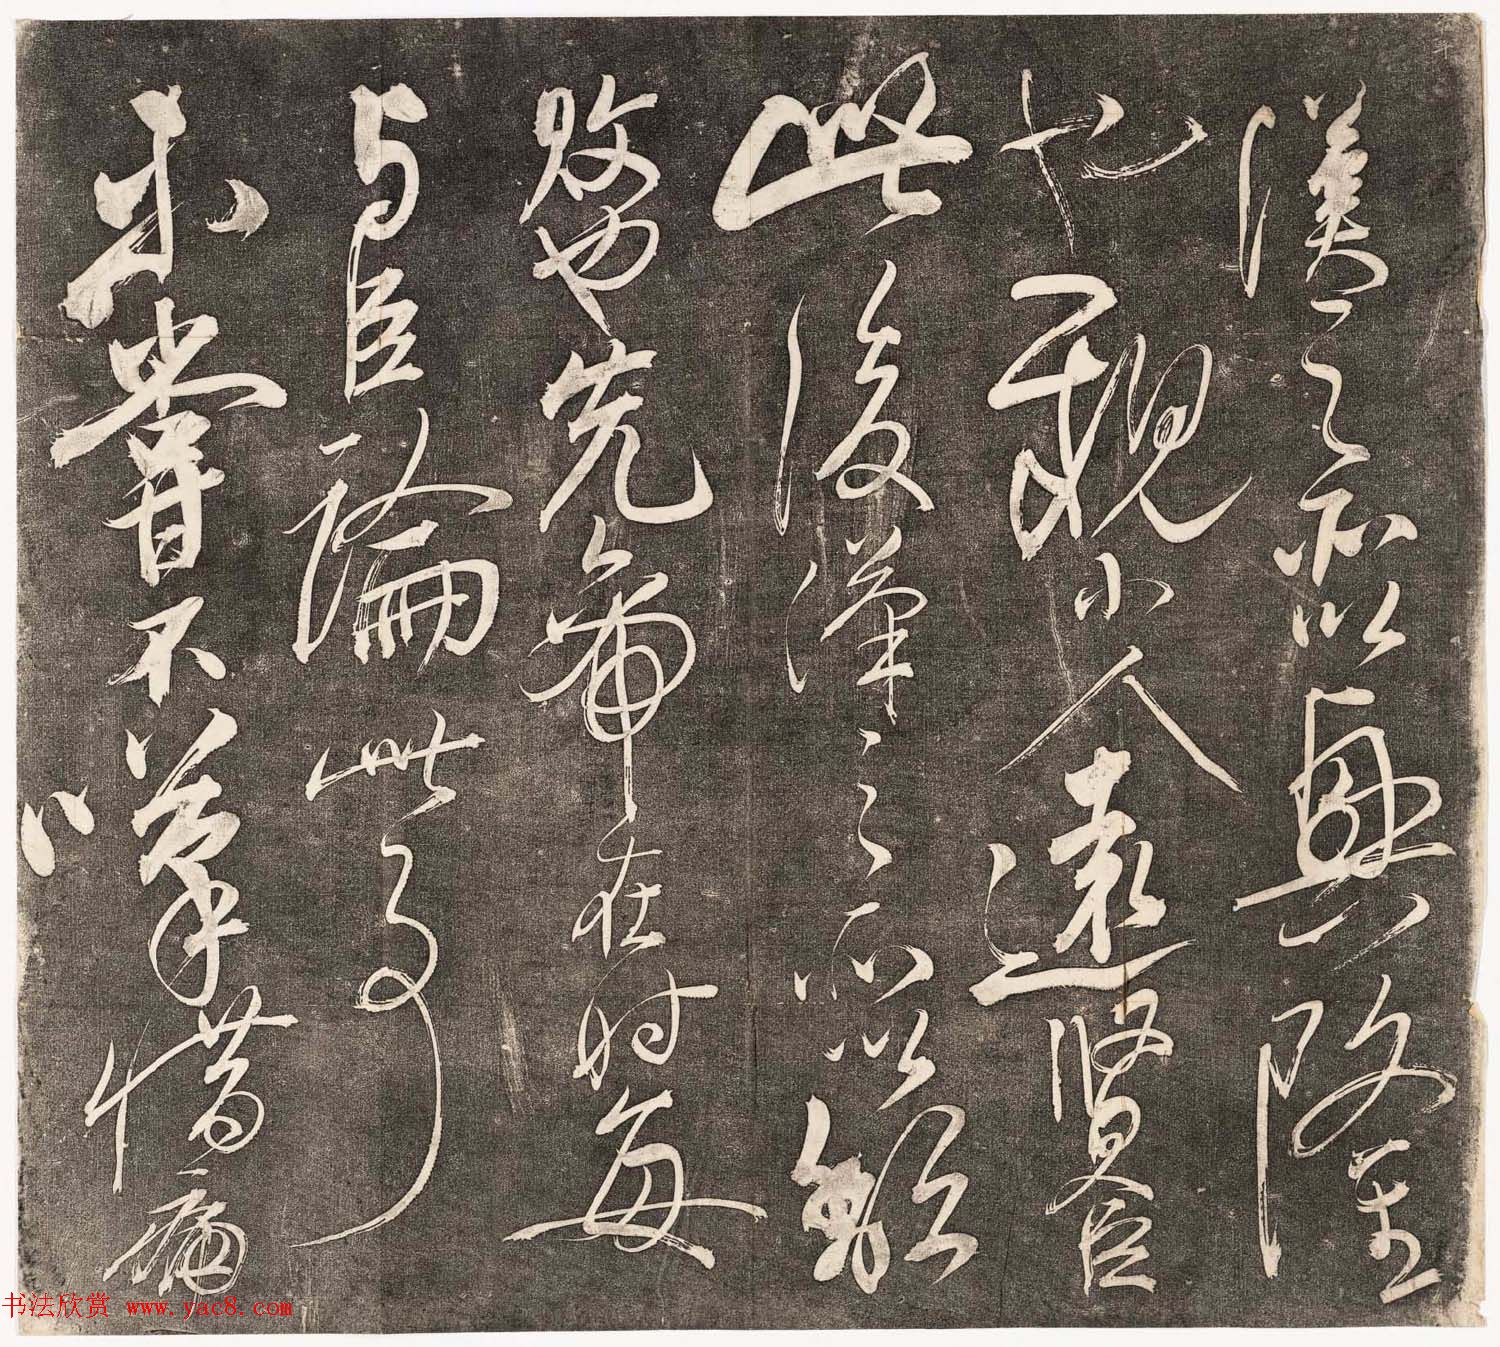 漢之所以興隆
也親小人遠賢臣
此後漢之所以頹
敗也先帝在时每
与臣論此事
未嘗不嘆惜痛
书法欣赏 www.yac8.com